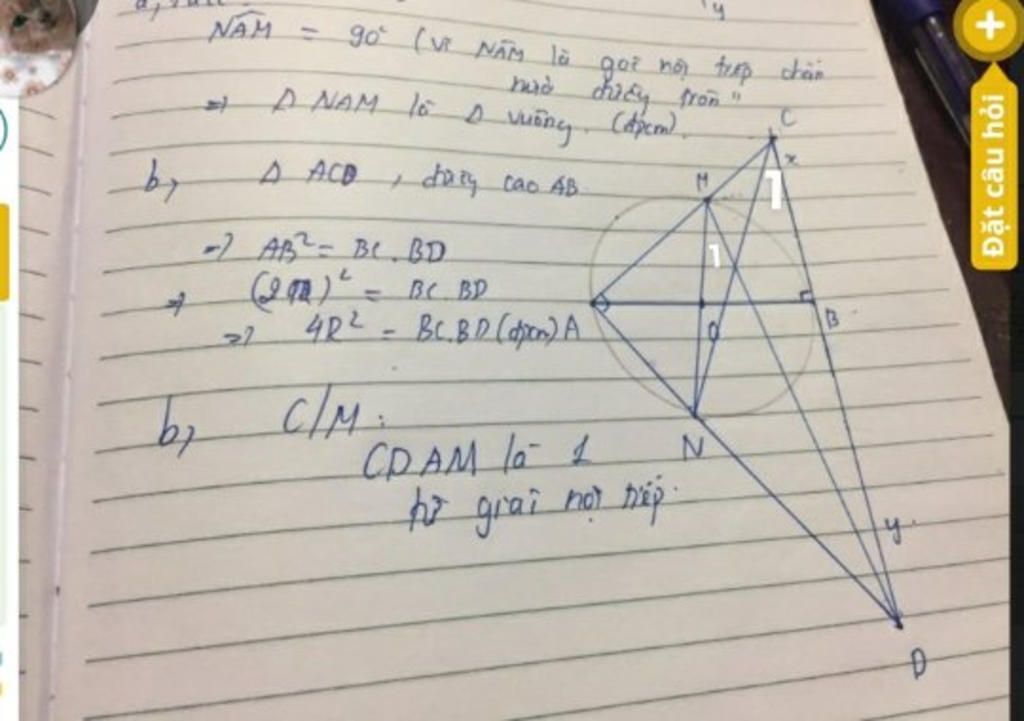 y
NÂM = 90° (vì NÂM là góc nội tiếp chắn
nửa đường tròn"
=> Δ NAM là Δ vuông. (đpcm).
b, Δ ACD, đường cao AB.
=> AB² = BC.BD
=> (2R)² = BC.BD
=> 4R² = BC.BD (đpcm)
b, C/M:
CDAM là 1
tứ giác nội tiếp.
C
x
M
1
1
A
O
B
N
y
D
Đặt câu hỏi